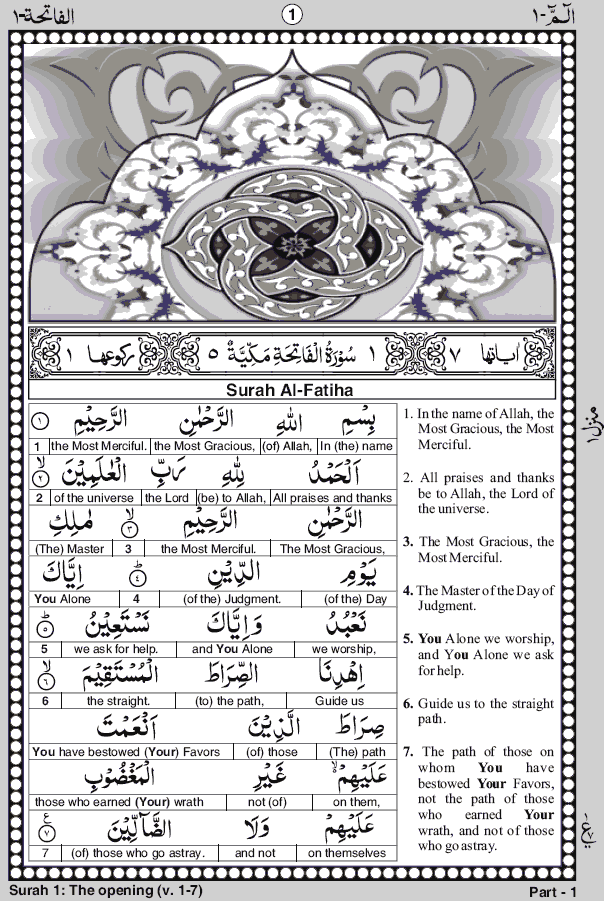 الفاتحة-١
1
الٓمّٓ-١
اٰیاتها ٧
١ سُوْرَةُ الْفَاتِحَةِ مَكِّيَّةٌ ٥
رکوعها ١
Surah Al-Fatiha
بِسْمِ اللهِ الرَّحْمٰنِ الرَّحِيْمِ ١
1 the Most Merciful. the Most Gracious, (of) Allah, In (the) name
اَلْحَمْدُ لِلّٰهِ رَبِّ الْعٰلَمِيْنَ ۙ ٢
2 of the universe the Lord (be) to Allah, All praises and thanks
الرَّحْمٰنِ الرَّحِيْمِ ۙ ٣ مٰلِكِ
(The) Master 3 the Most Merciful. The Most Gracious,
يَوْمِ الدِّيْنِ ؕ ٤ اِيَّاكَ
You Alone 4 (of the) Judgment. (of the) Day
نَعْبُدُ وَاِيَّاكَ نَسْتَعِيْنُ ؕ ٥
5 we ask for help. and You Alone we worship,
اِهْدِنَا الصِّرَاطَ الْمُسْتَقِيْمَ ۙ ٦
6 the straight. (to) the path, Guide us
صِرَاطَ الَّذِيْنَ اَنْعَمْتَ
You have bestowed (Your) Favors (of) those (The) path
عَلَيْهِمْ ۙ غَيْرِ الْمَغْضُوْبِ
those who earned (Your) wrath not (of) on them,
عَلَيْهِمْ وَلَا الضَّآلِّيْنَ ٧ ع
7 (of) those who go astray. and not on themselves
1. In the name of Allah, the
Most Gracious, the Most
Merciful.
2. All praises and thanks
be to Allah, the Lord of
the universe.
3. The Most Gracious, the
Most Merciful.
4. The Master of the Day of
Judgment.
5. You Alone we worship,
and You Alone we ask
for help.
6. Guide us to the straight
path.
7. The path of those on
whom You have
bestowed Your Favors,
not the path of those
who earned Your
wrath, and not of those
who go astray.
منزل ١
Surah 1: The opening (v. 1-7)
Part - 1